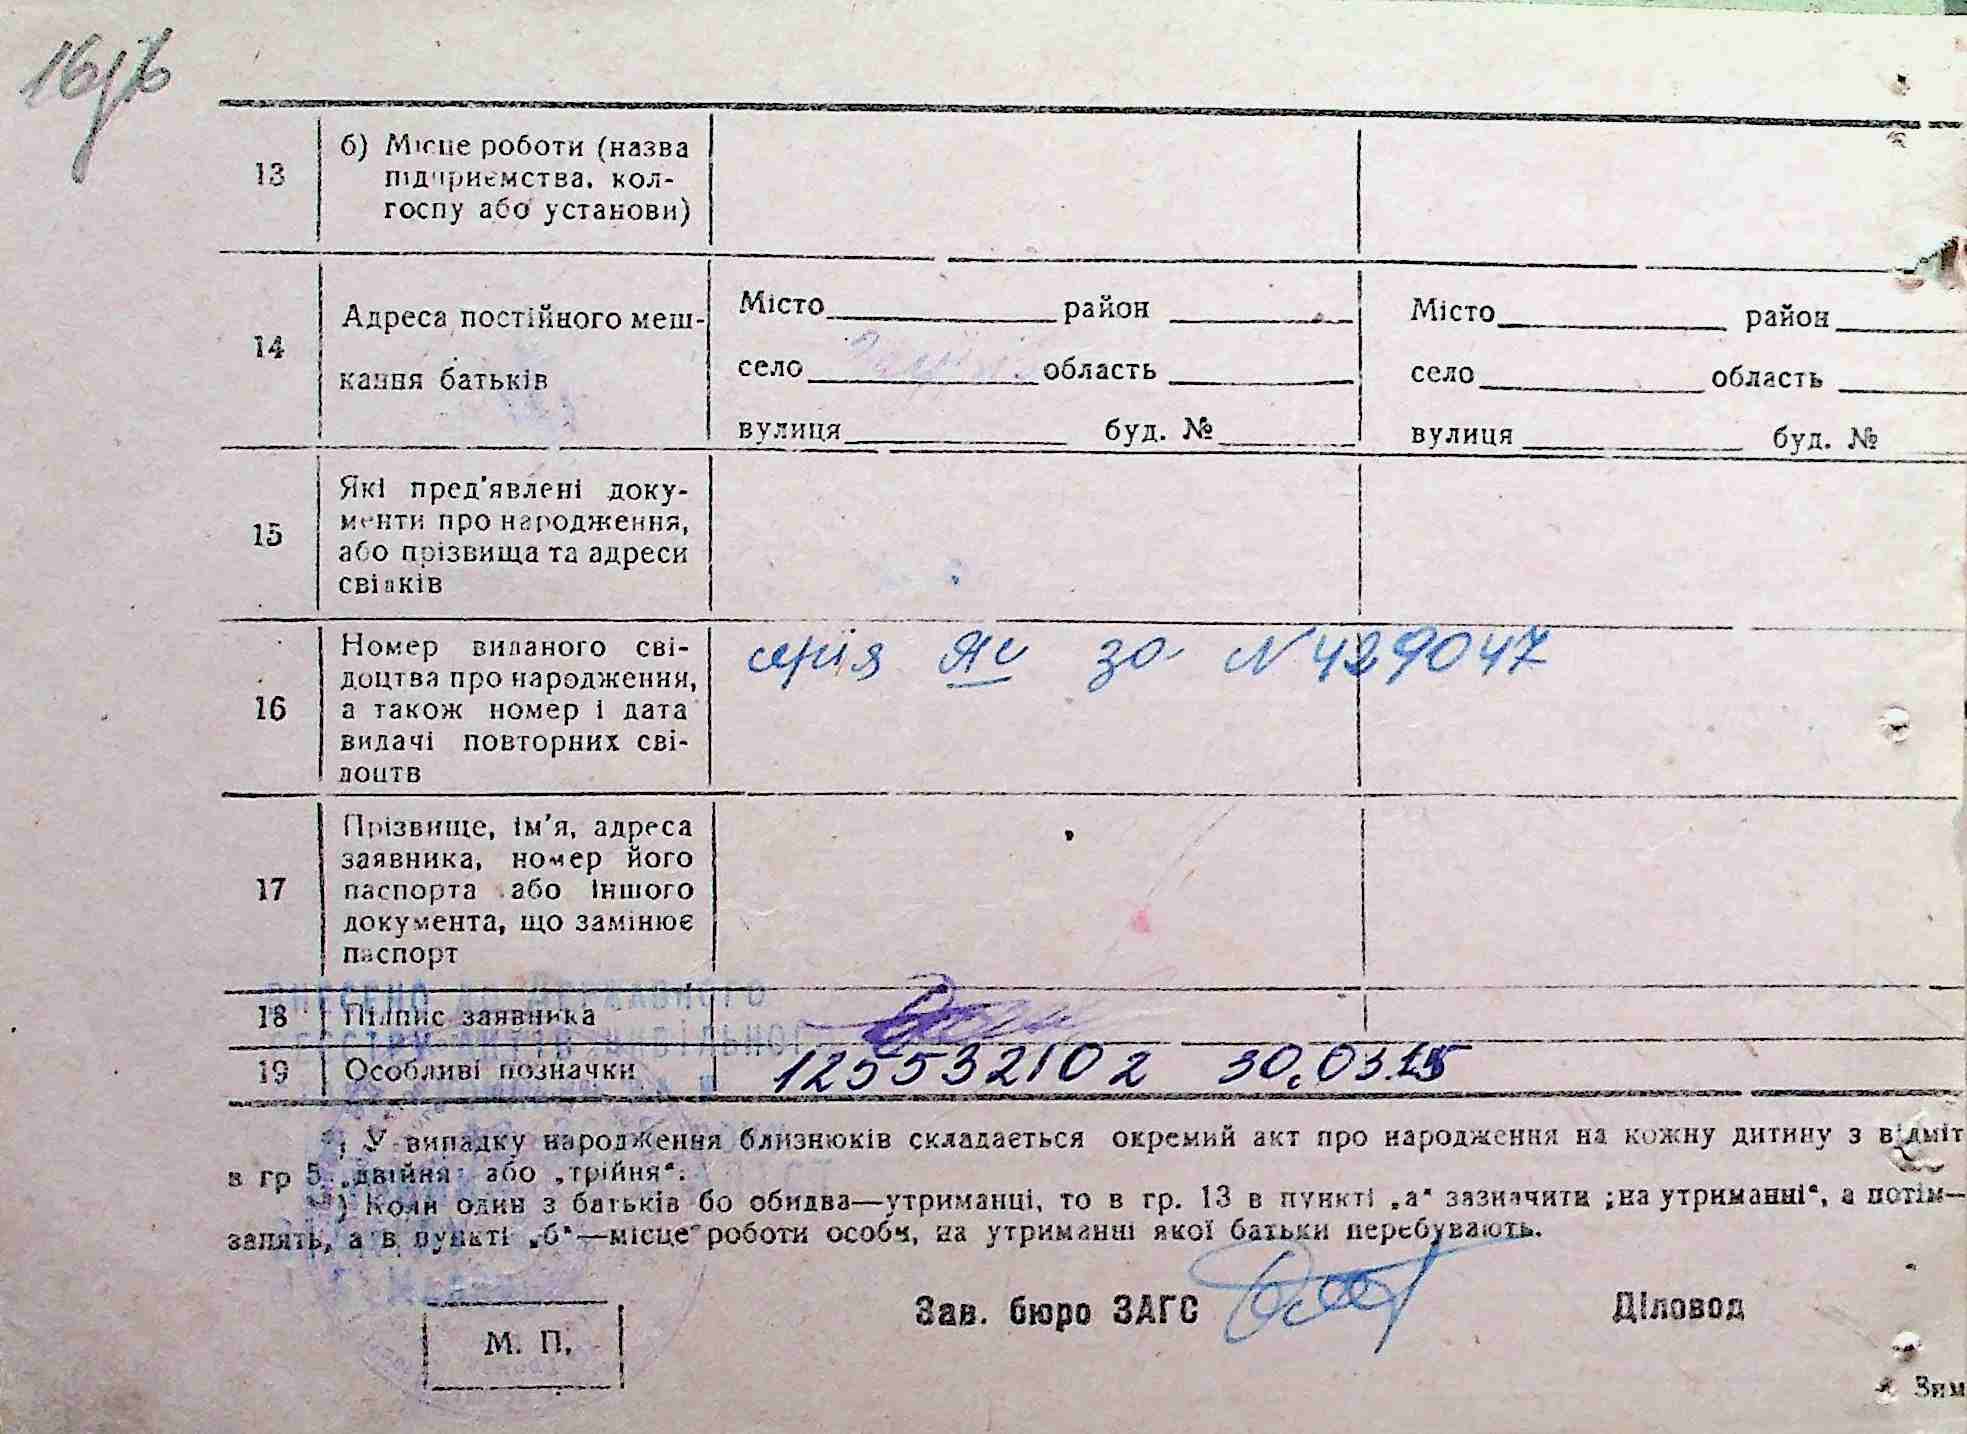 13
б) Місце роботи (назва
підприємства, кол-
госпу або установи)
14
Адреса постійного меш-
кання батьків
Місто район
село область
вулиця буд. №
Місто район
село область
вулиця буд. №
15
Які пред'явлені доку-
менти про народження,
або прізвища та адреси
свідків
16
Номер виданого сві-
доцтва про народження,
а також номер і дата
видачі повторних сві-
доцтв
серія ЯС за N 429047
17
Прізвище, ім'я, адреса
заявника, номер його
паспорта або іншого
документа, що замінює
паспорт
ВНЕСЕНО ДО ДЕРЖАВНОГО
18
Підпис заявника
РЕЄСТРУ АКТІВ ЦИВІЛЬНОГО
19
Особливі позначки
125532102 30.03.15
*) У випадку народження близнюків складається окремий акт про народження на кожну дитину з відміт
в гр 5 „двійня" або „трійня".
**) Коли один з батьків бо обидва—утриманці, то в гр. 13 в пункті „а" зазначити „на утриманні", а потім—
занять, а в пункті „б"—місце роботи особи, на утриманні якої батьки перебувають.
Зав. бюро ЗАГС
Діловод
М. П.
Зим